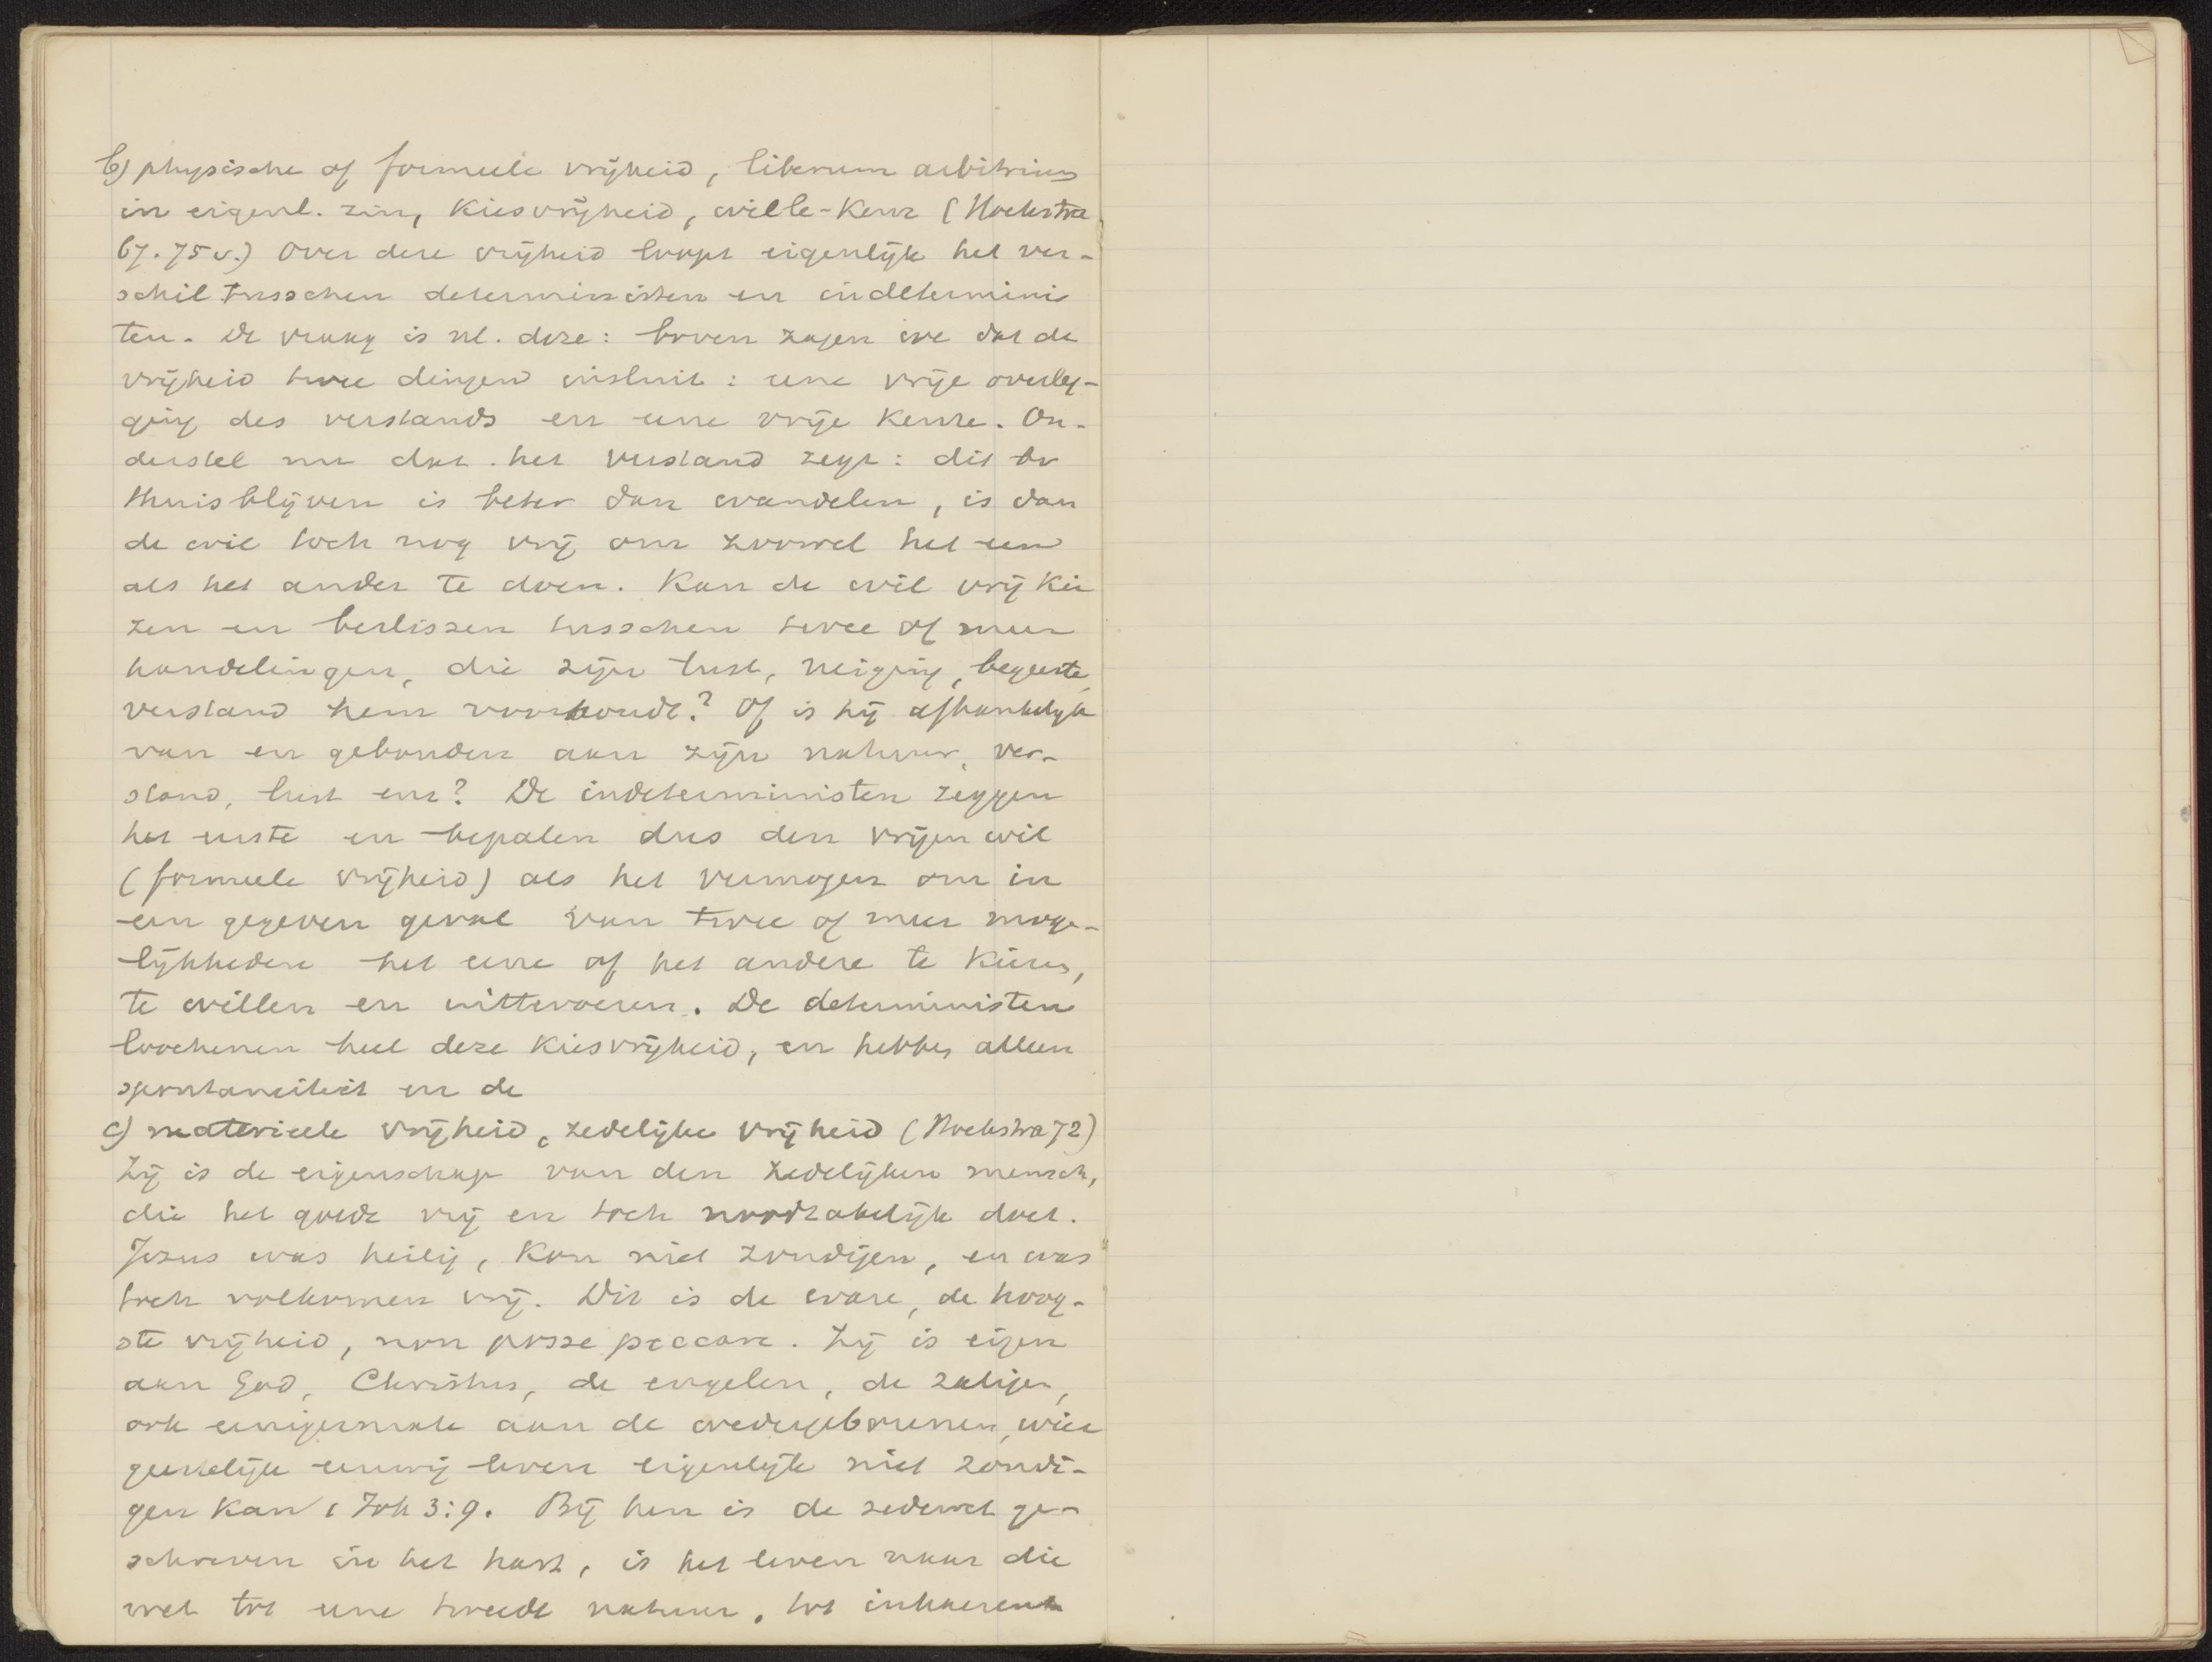 b) physische of formeele vrijheid, liberum arbitrium
in eigenl. zin, Kiesvrijheid, wille-keur (Hoekstra
67. 75 v.) Over deze vrijheid loopt eigenlijk het ver-
schil tusschen deterministen en indetermini
ten. De vraag is nl. deze: boven zagen we dat de
vrijheid twee dingen insluit: eene vrije overleg-
ging des verstands en eene vrije Keuze. On-
derstel nu dat het verstand zegt: dit bv
thuisblijven is beter dan wandelen, is dan
de wil toch nog vrij om zoowel het een
als het ander te doen. Kan de wil vrij Kie
zen en beslissen tusschen twee of meer
handelingen, die zijn lust, neiging, begeerte,
verstand hem voorhoudt? Of is hij afhankelijk
van en gebonden aan zijn natuur, ver-
stand, lust enz? De indeterministen zeggen
het eerste en bepalen dus den vrijen wil
(formeele vrijheid) als het vermogen om in
een gegeven geval van twee of meer moge-
lijkheden het eene of het andere te Kiezen,
te willen en uittevoeren. De deterministen
loochenen heel deze Kiesvrijheid, en hebben alleen
spontaneiteit en de
c) materieele vrijheid, zedelijke vrijheid (Hoekstra 72)
Zij is de eigenschap van den zedelijken mensch,
die het goede vrij en toch noodzakelijk doet.
Jezus was heilig, Kon niet zondigen, en was
toch volkomen vrij. Dit is de ware, de hoog-
ste vrijheid, non posse peccare. Zij is eigen
aan God, Christus, de engelen, de zaligen,
ook eenigermate aan de wedergeborenen, wier
geestelijk leven eigenlijk niet zondi-
gen Kan 1 Joh 3:9. Bij hen is de zedewet ge-
schreven in het hart, is het leven naar die
wet tot eene tweede natuur, tot inhaerent